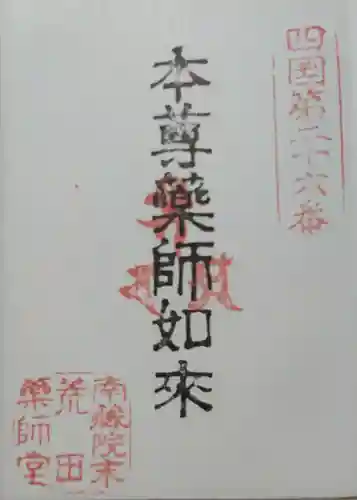 四国第二十六番
本尊藥師如來
南蔵院末
荒田
藥師堂